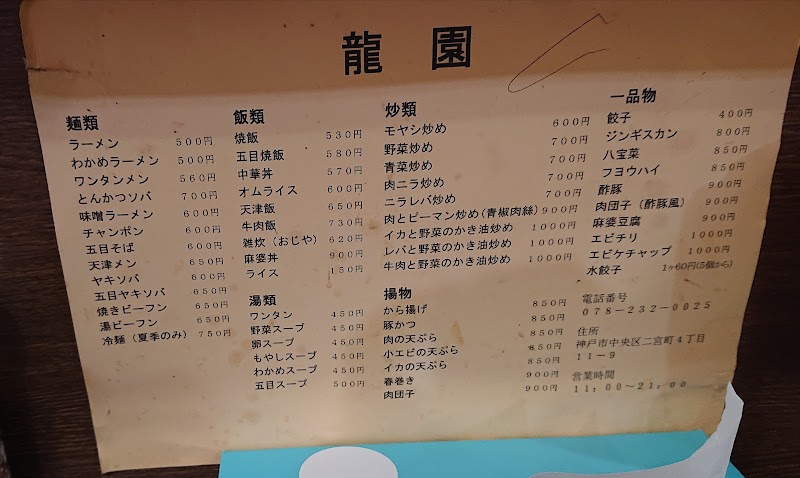 龍園
麺類
ラーメン 500円
わかめラーメン 500円
ワンタンメン 560円
とんかつソバ 700円
味噌ラーメン 600円
チャンポン 600円
五目そば 600円
天津メン 650円
ヤキソバ 600円
五目ヤキソバ 650円
焼きビーフン 650円
湯ビーフン 650円
冷麺（夏季のみ） 750円
飯類
焼飯 530円
五目焼飯 580円
中華丼 570円
オムライス 600円
天津飯 650円
牛肉飯 730円
雑炊（おじや） 620円
麻婆丼 900円
ライス 150円
湯類
ワンタン 450円
野菜スープ 450円
卵スープ 450円
もやしスープ 450円
わかめスープ 450円
五目スープ 500円
炒類
モヤシ炒め 600円
野菜炒め 700円
青菜炒め 700円
肉ニラ炒め 700円
ニラレバ炒め 700円
肉とピーマン炒め(青椒肉絲) 900円
イカと野菜のかき油炒め 1000円
レバと野菜のかき油炒め 1000円
牛肉と野菜のかき油炒め 1000円
揚物
から揚げ 850円
豚かつ 850円
肉の天ぷら 850円
小エビの天ぷら 850円
イカの天ぷら 850円
春巻き 900円
肉団子 900円
一品物
餃子 400円
ジンギスカン 800円
八宝菜 850円
フヨウハイ 850円
酢豚 900円
肉団子（酢豚風） 900円
麻婆豆腐 900円
エビチリ 1000円
エビケチャップ 1000円
水餃子 1ヶ60円(5個から)
電話番号
078-232-0025
住所
神戸市中央区二宮町4丁目
11-9
営業時間
11:00～21:00